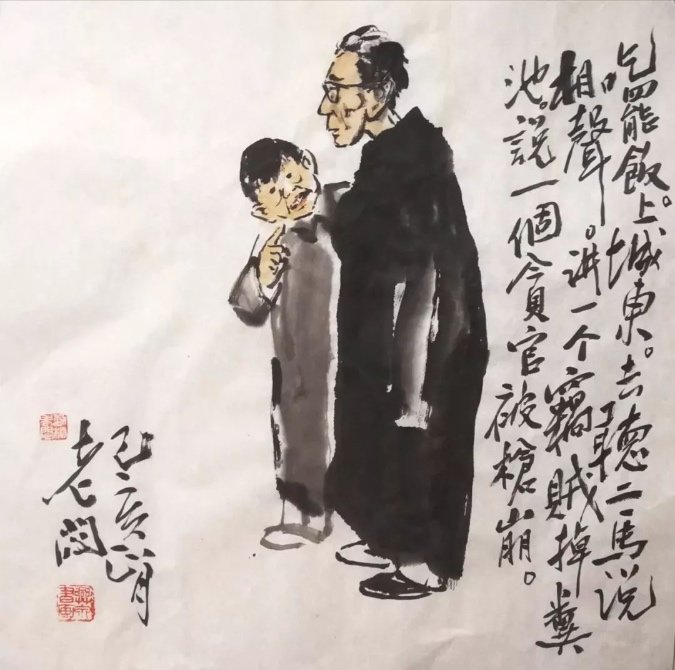 吃罷飯。上城東。去聽二馬说
相聲。讲一个竊賊掉糞
池。説一個貪官被槍崩。
己亥月
老闵